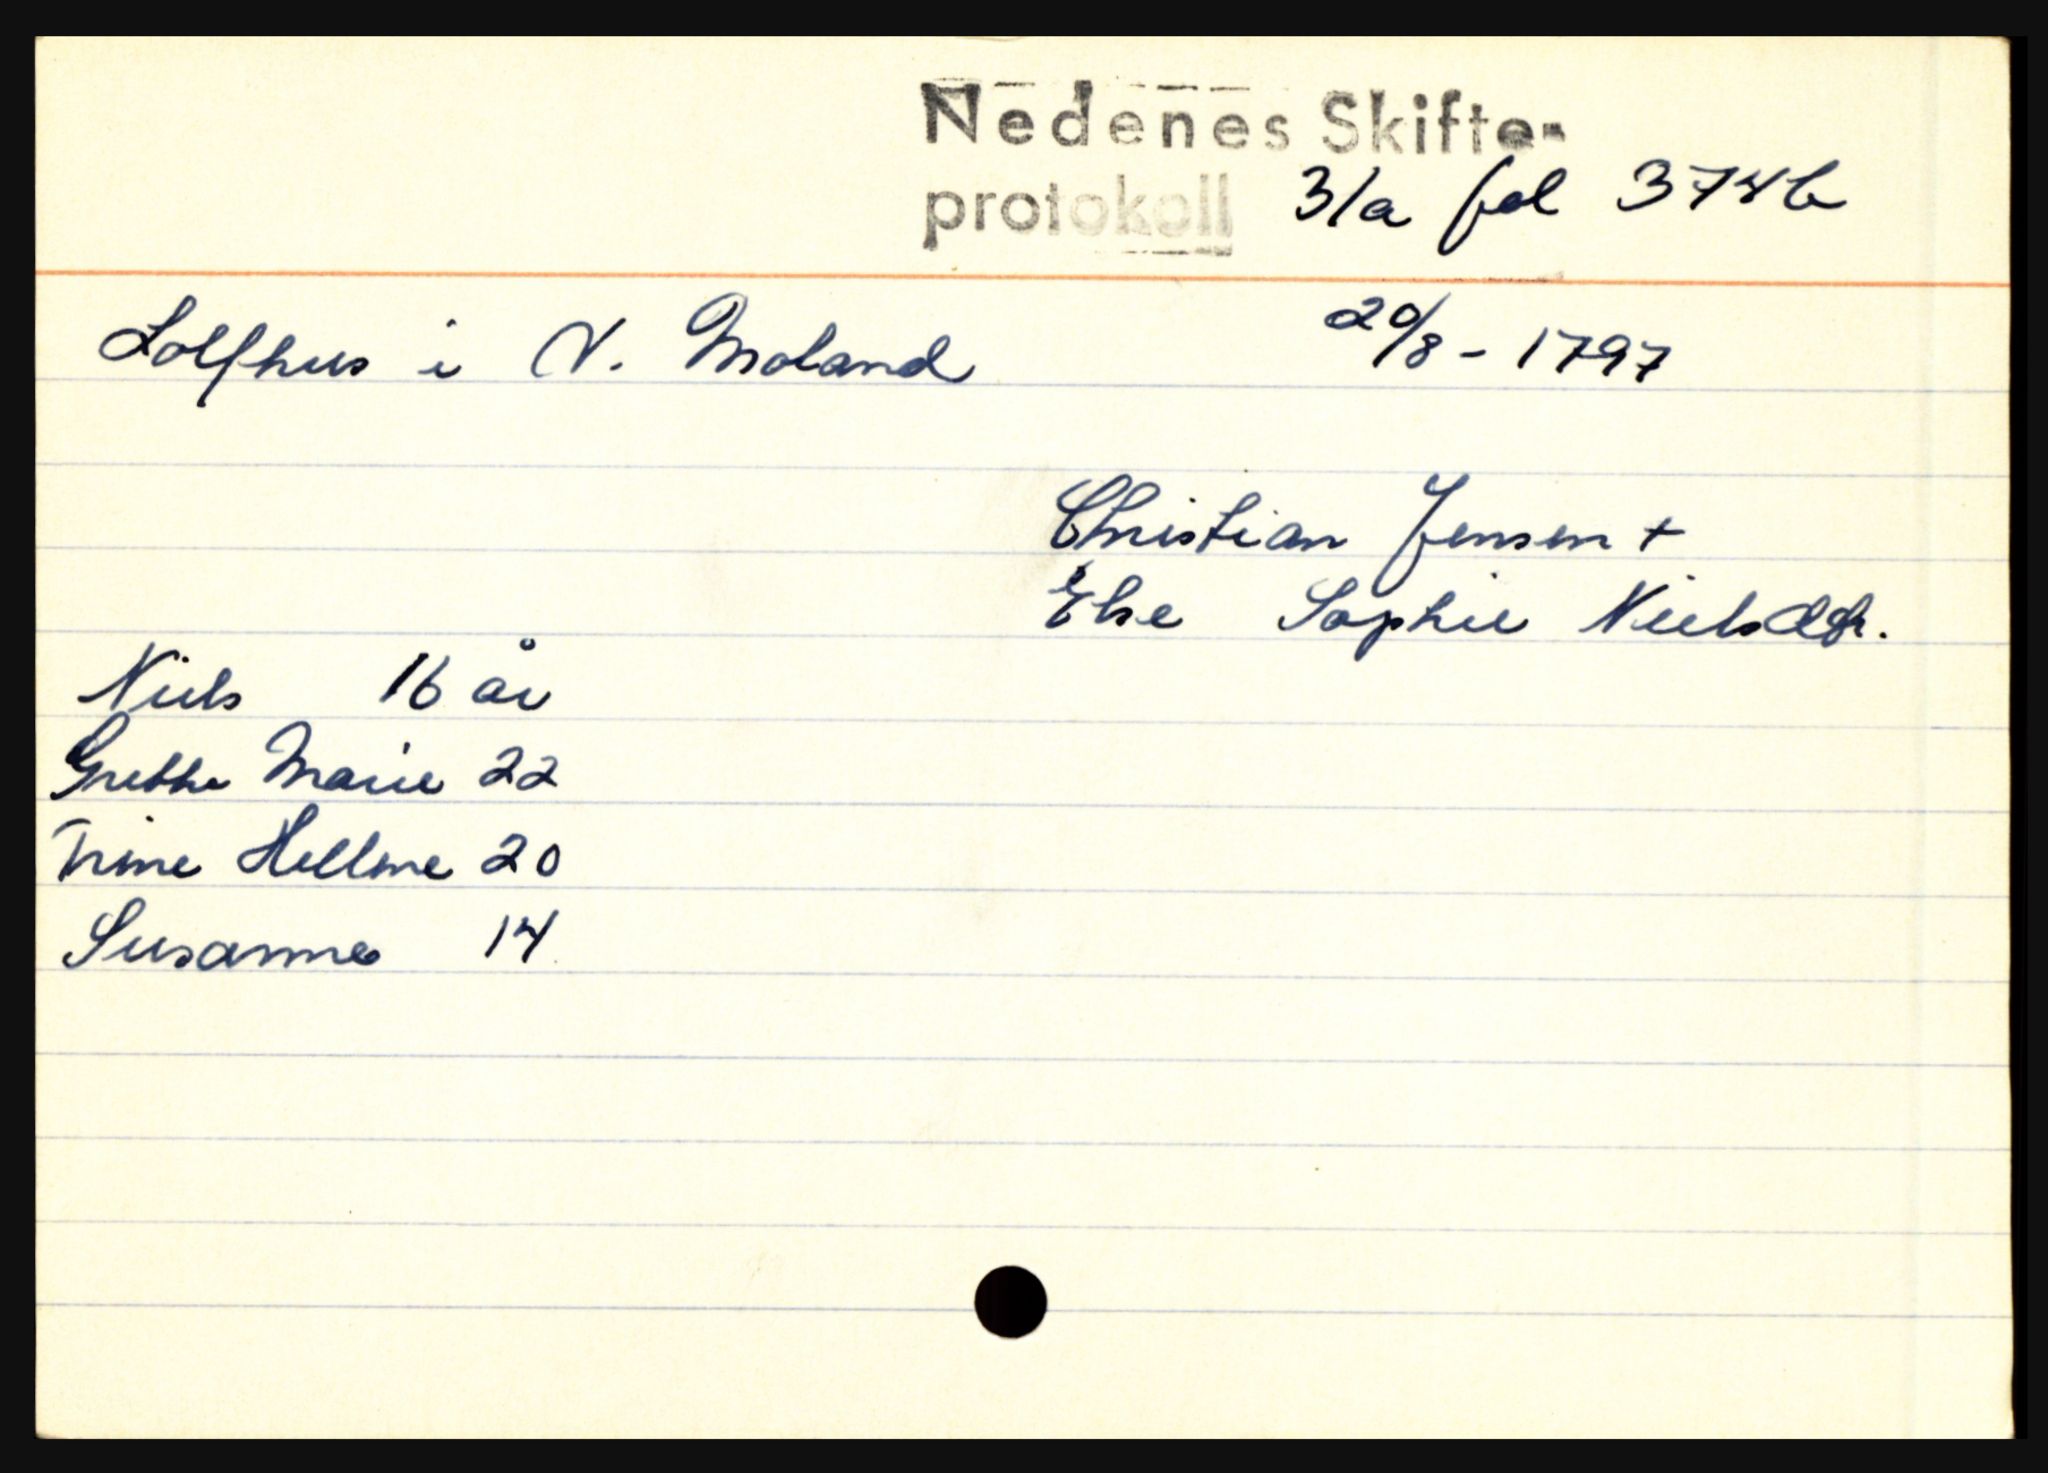 Nedenes Skifte-
protokoll 31a fol 374b
Lolfhus i V. Moland 20/8 - 1797
Christian Jensen +
Else Sophie Nielsdtr.
Niels 16 år
Grethe Marie 22
Trine Hellene 20
Susanne 14